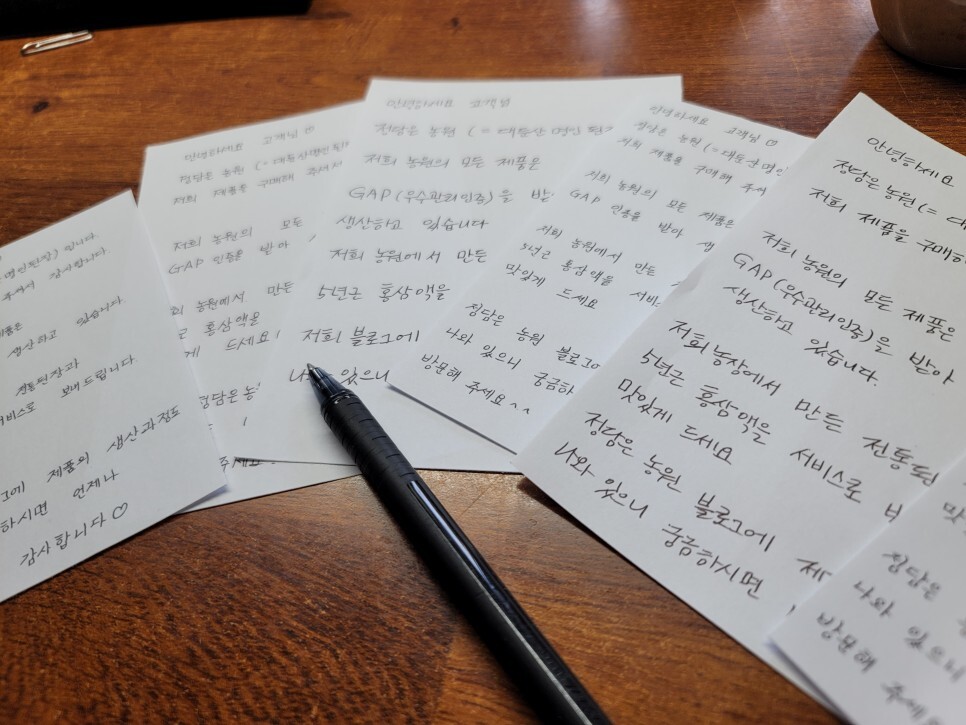 입니다.
명인된장)
주셔서 감사합니다.
제품은
생산하고 있습니다.
전통된장과
서비스로 보내드립니다
제품의 생산과정도
하시면 언제나
감사합니다♡
안녕하세요 고객님♡
정담은 농원 (=대둔산명인된장)
저희 제품을 구매해 주셔서
저희 농원의 모든
GAP 인증을 받아
농원에서 만든
홍삼액을
드세요
정담은 농
안녕하세요 고객님
정담은 농원 (=대둔산 명인 된
저희 농원의 모든 제품은
GAP(우수관리인증)을 받
생산하고 있습니다
저희 농원에서 만든
5년근 홍삼액을
저희 블로그에
있으니
안녕하세요 고객님♡
정담은 농원 (=대둔산명인
저희 제품을 구매해 주셔
저희 농원의 모든 제품은
GAP 인증을 받아 생
저희 농원에서 만든
5년근 홍삼액을 서비
맛있게 드세요
정담은 농원 블로그
나와 있으니 궁금하
방문해 주세요^^
안녕하세요
정담은 농원 (= 대
저희 제품을 구매하
저희 농원의 모든 제품은
GAP(우수관리인증)을 받아
생산하고 있습니다.
저희농장에서 만든 전통된
5년근 홍삼액을 서비스로
맛있게 드세요
정담은 농원 블로그에
나와 있으니 궁금하시면
정담은
나와 있으니
방문해 주세